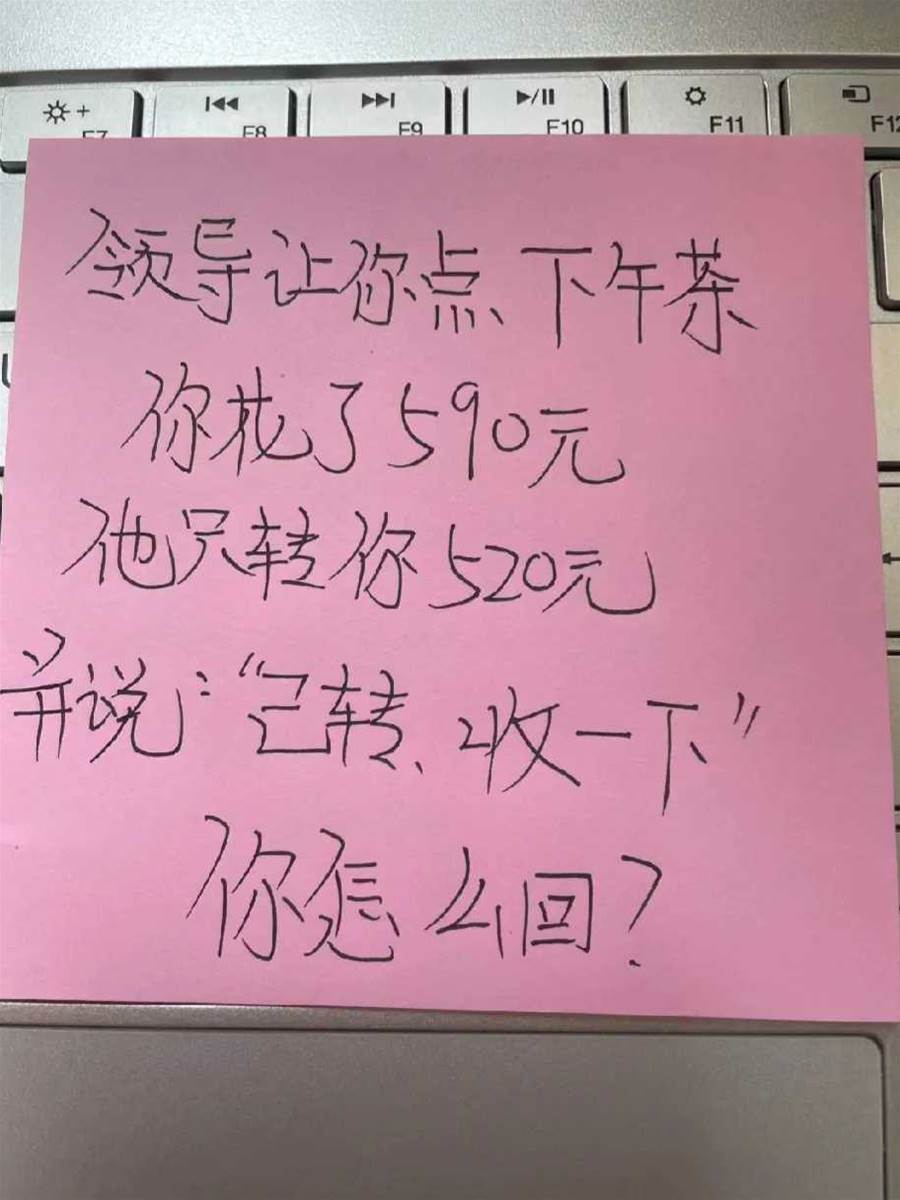 F7
F8
F9
F10
F11
F12
领导让你点下午茶
你花了590元
他只转你520元
并说:“已转、收一下”
你怎么回?